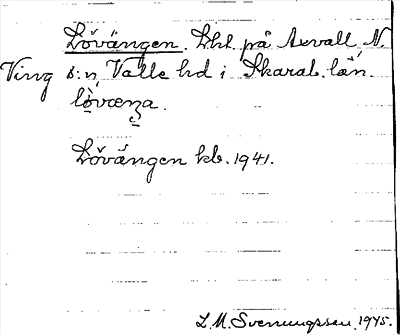 Lövängen. Lht. på Axvall, N.
Ving s:n, Valle hd i Skarab. län.
Lövängen kb. 1941.
L. M. Svenungsson, 1945.